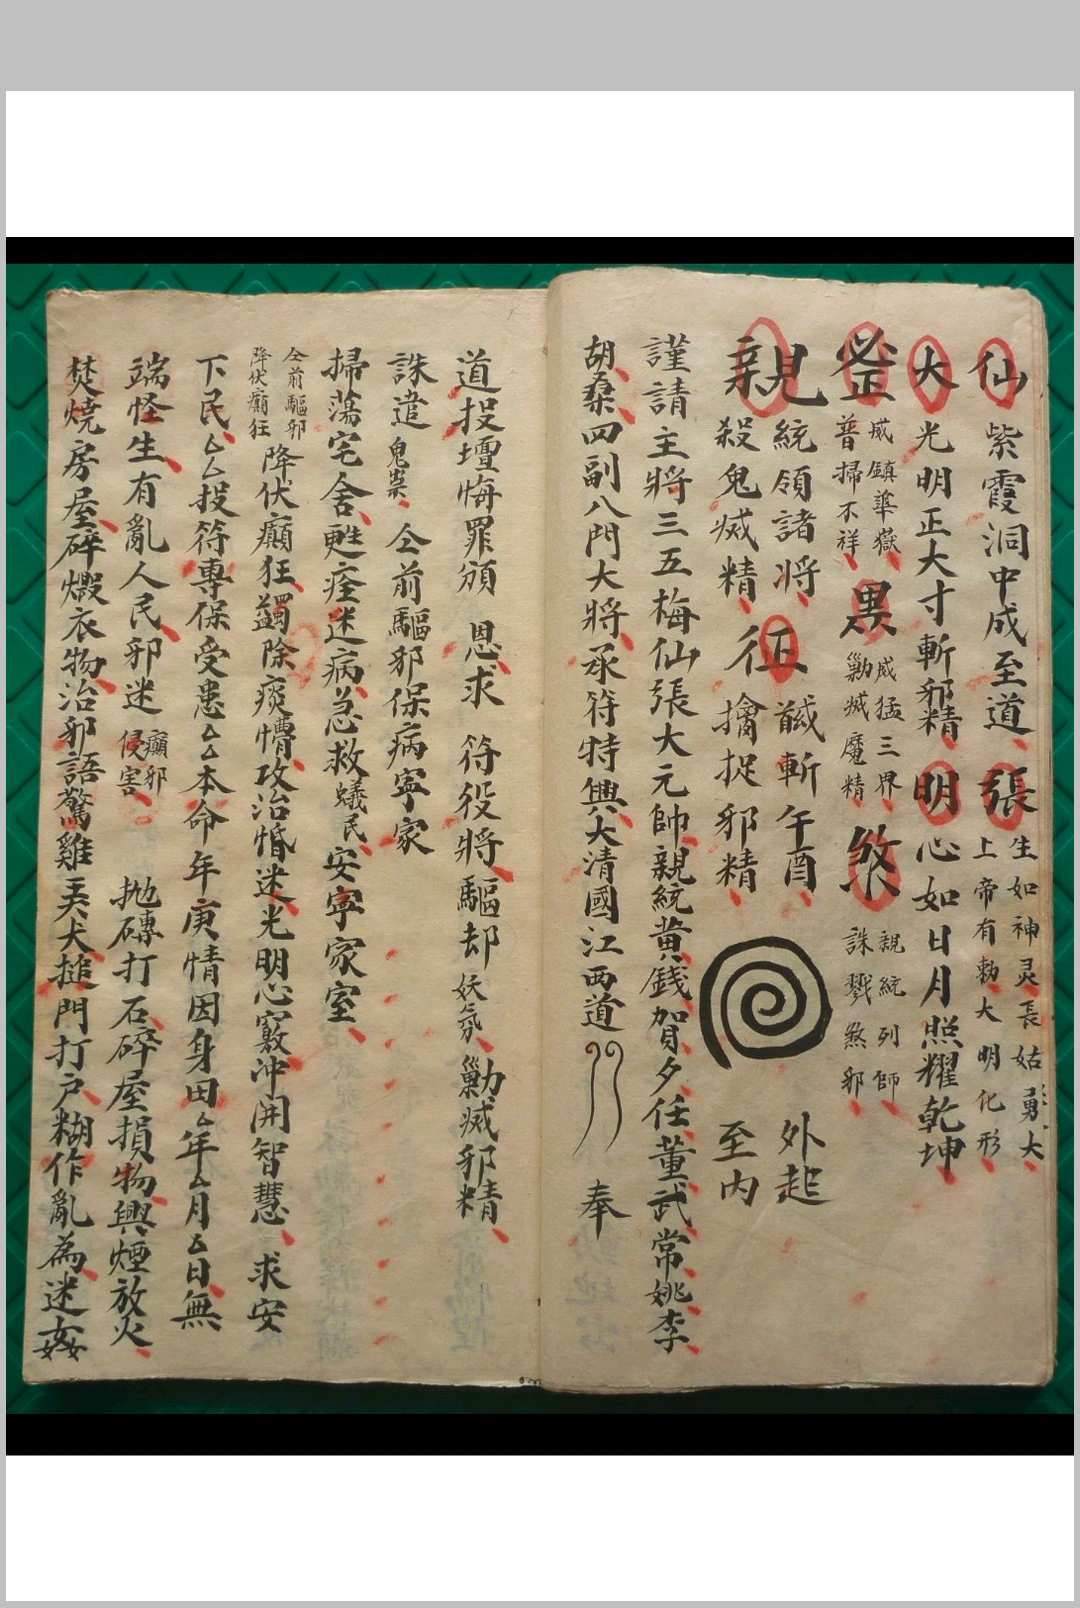 仙 紫霞洞中成至道 張 生如神灵長姑勇大
上帝有勅大明化形
大 光明正大寸斬邪精 明 心如日月照耀乾坤
威鎮華嶽
普掃不祥
黑 威猛三界
勦滅魔精
煞 親統列師
誅戮煞邪
親 統領諸將
殺鬼滅精
征 馘斬午酉
擒捉邪精
外起
至内
謹請主將三五梅仙張大元帥親統黃錢賀夕任董武常姚李
胡桑四副八門大將承符特興大清國江西道 奉
道投壇悔罪頒 恩求 符役將驅却妖氛勦滅邪精
誅遣鬼祟 仝前驅邪保病寧家
掃蕩宅舍甦痊迷病急救蟻民安寧家室
仝前驅邪
降伏癲狂
降伏癲狂蠲除痰懵攻治惛迷光明心竅冲開智慧求安
下民厶厶投符專保受患厶厶本命年庚情因身田厶年厶月厶日無
端怪生有亂人民邪迷 癲邪
侵害
拋磚打石碎屋損物興煙放火
焚燒房屋碎燬衣物治邪語驚雞美犬搥門打戶糊作亂為迷姦